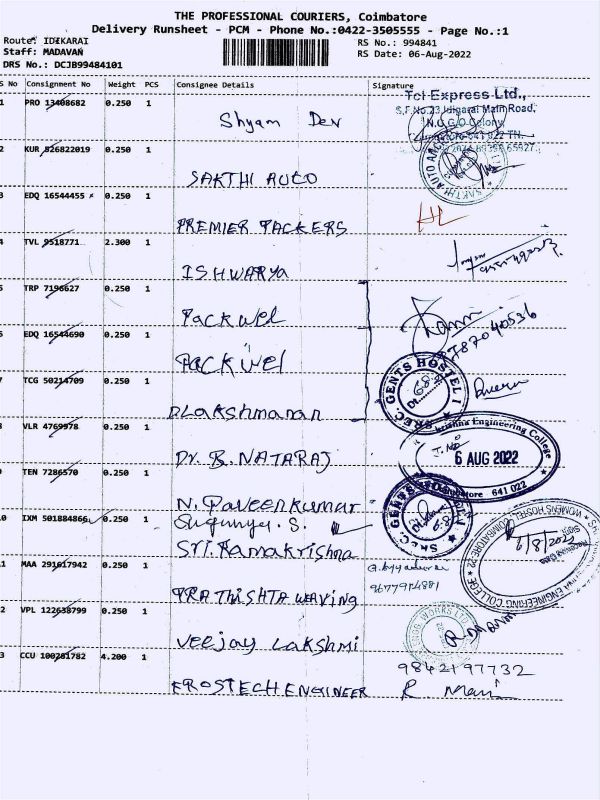 THE PROFESSIONAL COURIERS, Coimbatore
Delivery Runsheet - PCM - Phone No.:0422-3505555 - Page No.:1
Route: IDIKARAI
Staff: MADAVAN
DRS No.: DCJB99484101
RS No.: 994841
RS Date: 06-Aug-2022
S No Consignment No Weight PCS Consignee Details Signature
1 PRO 13408682 0.250 1 Shyam Dev
Tci Express Ltd.,
S.F.No.23, Main Road,
N.G.G.O Colony,
2 KUR 526822019 0.250 1 SAKTHI AUTO
3 EDQ 16544455 0.250 1 PREMIER PACKERS
4 TVL 9518771 2.300 1 ISHWARYA
5 TRP 7196627 0.250 1 Packwel
6 EDQ 16544690 0.250 1 Packwel
7 TCG 50214709 0.250 1 D. Lakshmanan
SREC. GENTS HOSTEL I
8 VLR 4769978 0.250 1 Dr. B. NATARAJ
Engineering College
6 AUG 2022
Coimbatore 641 022
9 TEN 7286570 0.250 1 N. Paveenkumar
10 IXM 501884866 0.250 1 Sugunya. S.
Sri. Ramakrishna
ENGINEERING COLLEGE
11 MAA 291617942 0.250 1 PRATHISHTA WEAVING
9677914881
12 VPL 122638799 0.250 1 Veejay Lakshmi
R. Mani
13 CCU 100281782 4.200 1 EROSTECH ENGINEER
9842197732
R Mani